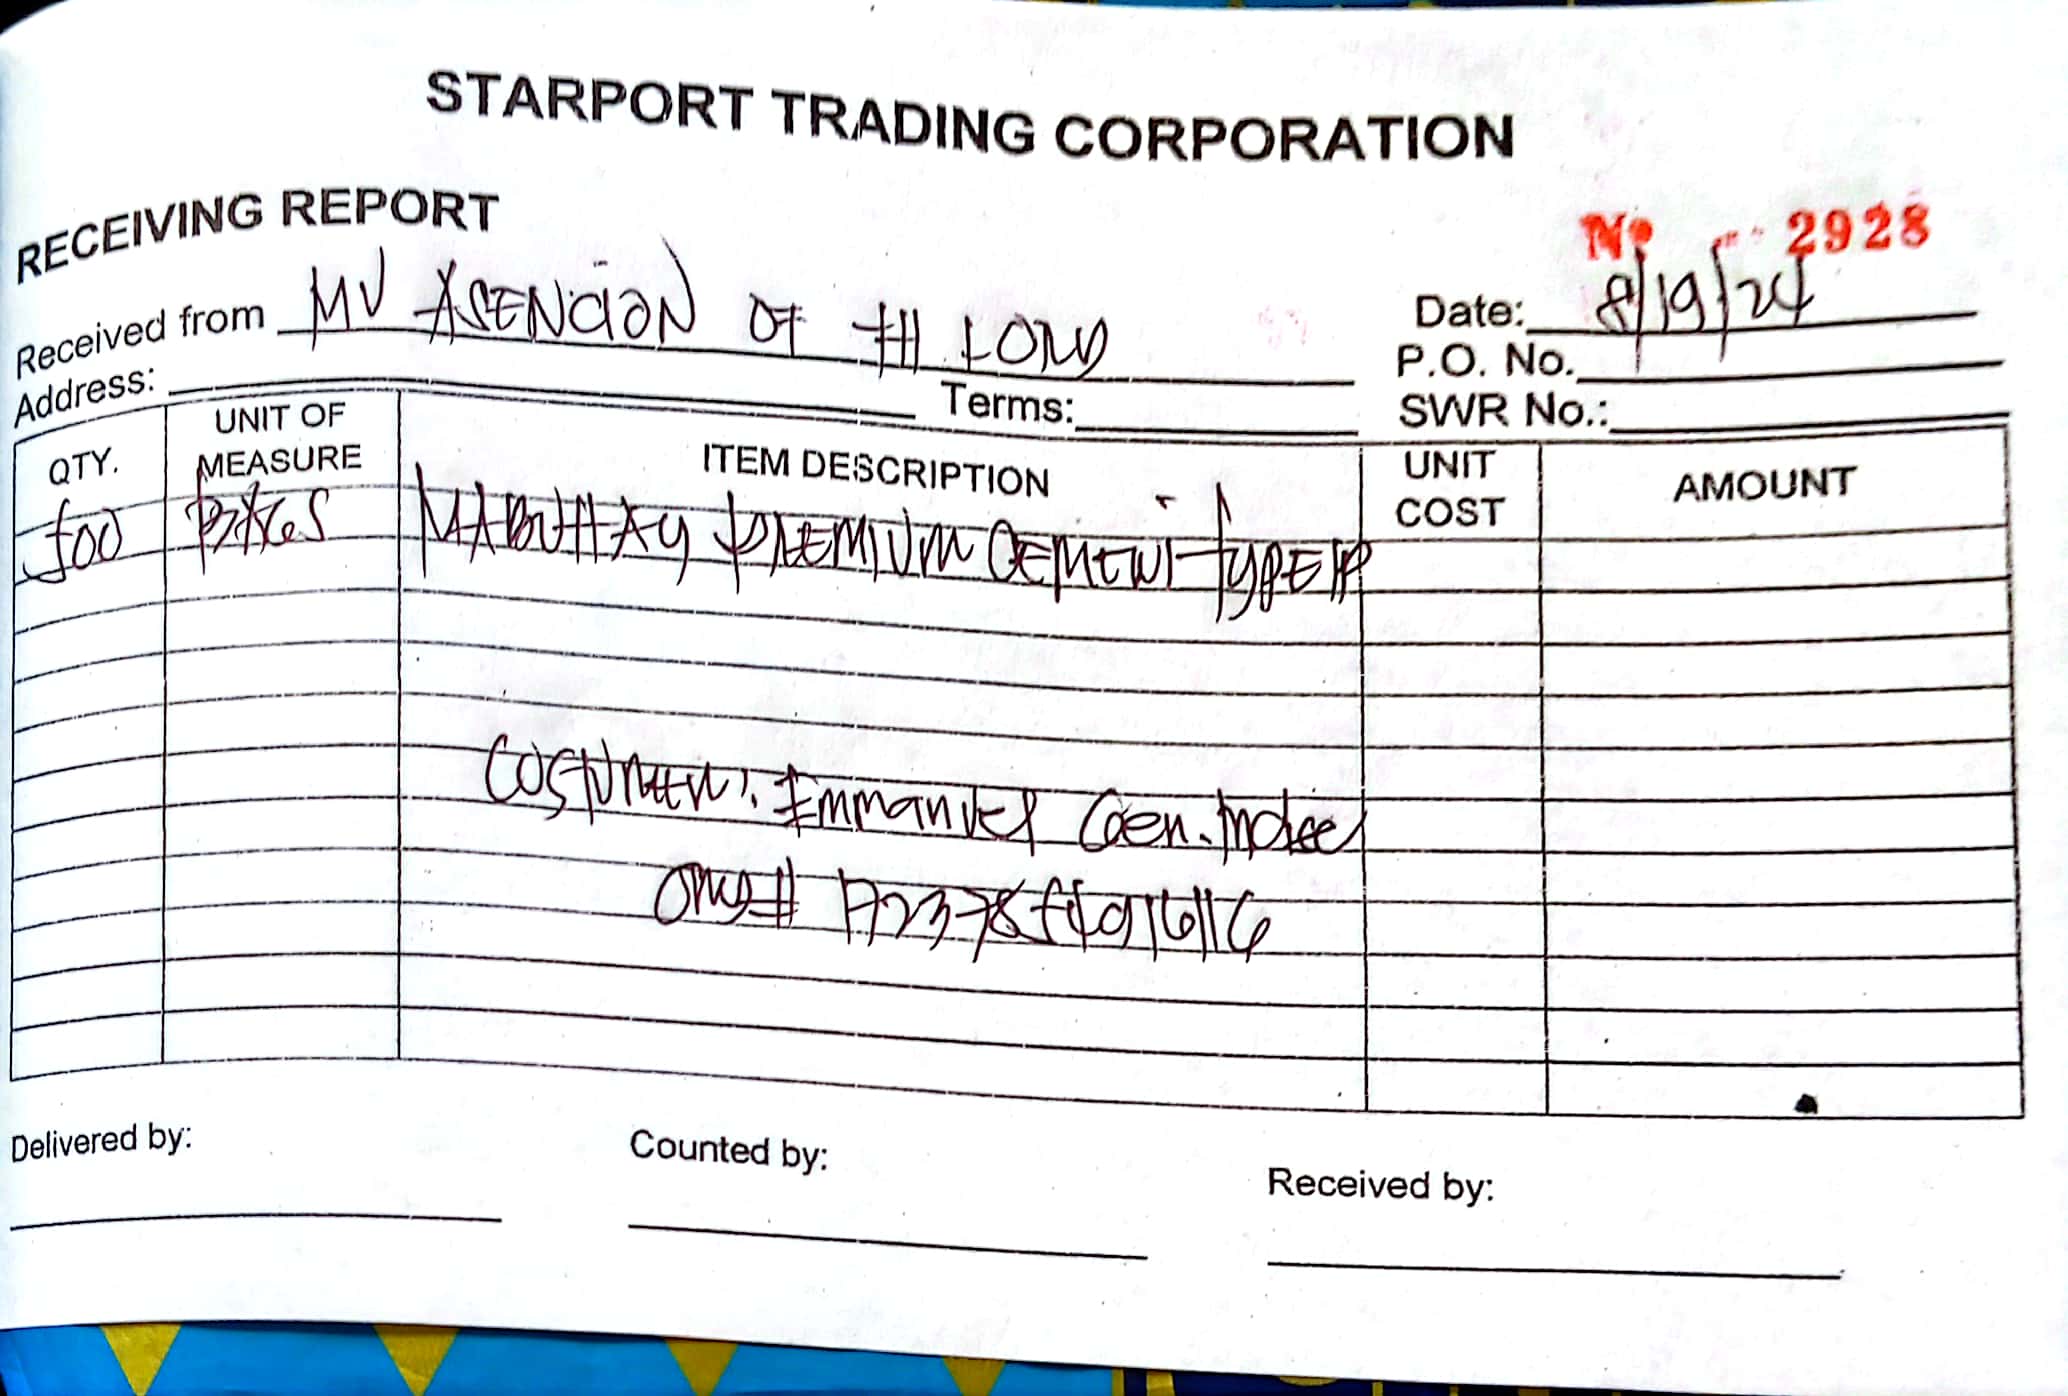 STARPORT TRADING CORPORATION
RECEIVING REPORT
Nº 2928
Received from MV ASENCION OF
Date: 8/19/24
Address:
Terms:
P.O. No.
SWR No.:
QTY. UNIT OF MEASURE ITEM DESCRIPTION UNIT COST AMOUNT
500 BAGS MABUHAY PREMIUM CEMENT TYPE IP
COSTUMER: Emmanuel Gen. Mdse
Delivered by:
Counted by:
Received by: